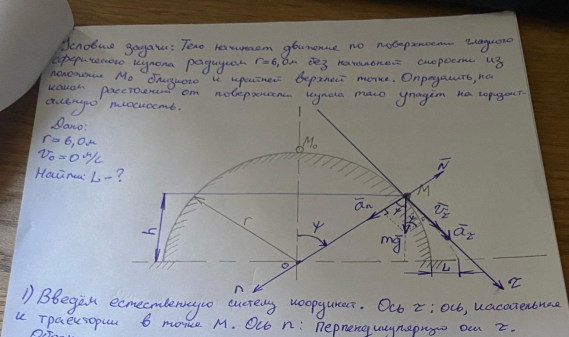 Условия задачи: Тело начинает движение по поверхности гладкого
сферического купола радиусом r=6,0м без начальной скорости из
положения M₀ близкого к крайней верхней точке. Определить, на
каком расстоянии от поверхности купола тело упадёт на горизонт-
альную плоскость.
Дано:
r=6,0м
v₀=0 м/с
Найти: L-?
M₀
N̄
M
āₙ
ψ
v̄τ
āτ
mḡ
h
r
ψ
o
L
n
τ
1) Введём естественную систему координат. Ось τ: ось, касательная
к траектории в точке M. Ось n: перпендикулярную оси τ.